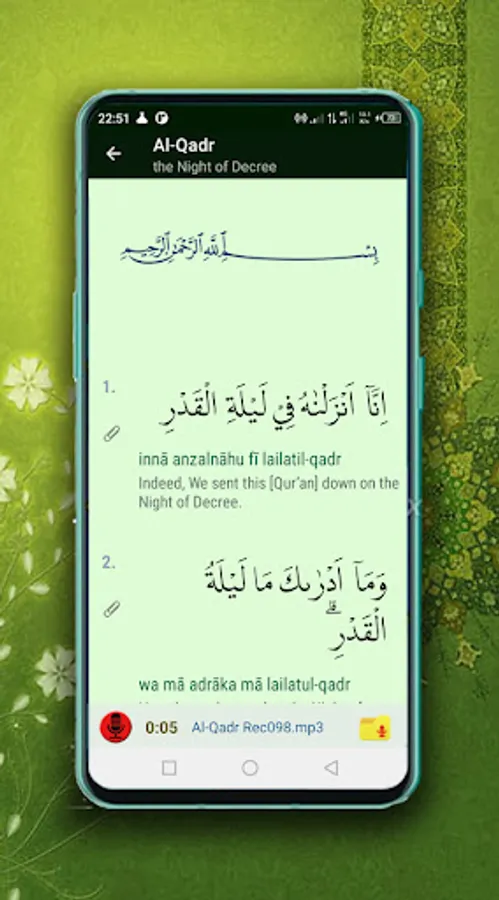 22:51
Al-Qadr
the Night of Decree
بِسْــــمِ اللهِ الرَّحْمٰنِ الرَّحِيْمِ
1.
اِنَّآ اَنْزَلْنٰهُ فِيْ لَيْلَةِ الْقَدْرِ
innā anzalnāhu fī lailatil-qadr
Indeed, We sent this [Qur'an] down on the
Night of Decree.
2.
وَمَآ اَدْرٰىكَ مَا لَيْلَةُ
الْقَدْرِۗ
wa mā adrāka mā lailatul-qadr
0:05 Al-Qadr Rec098.mp3